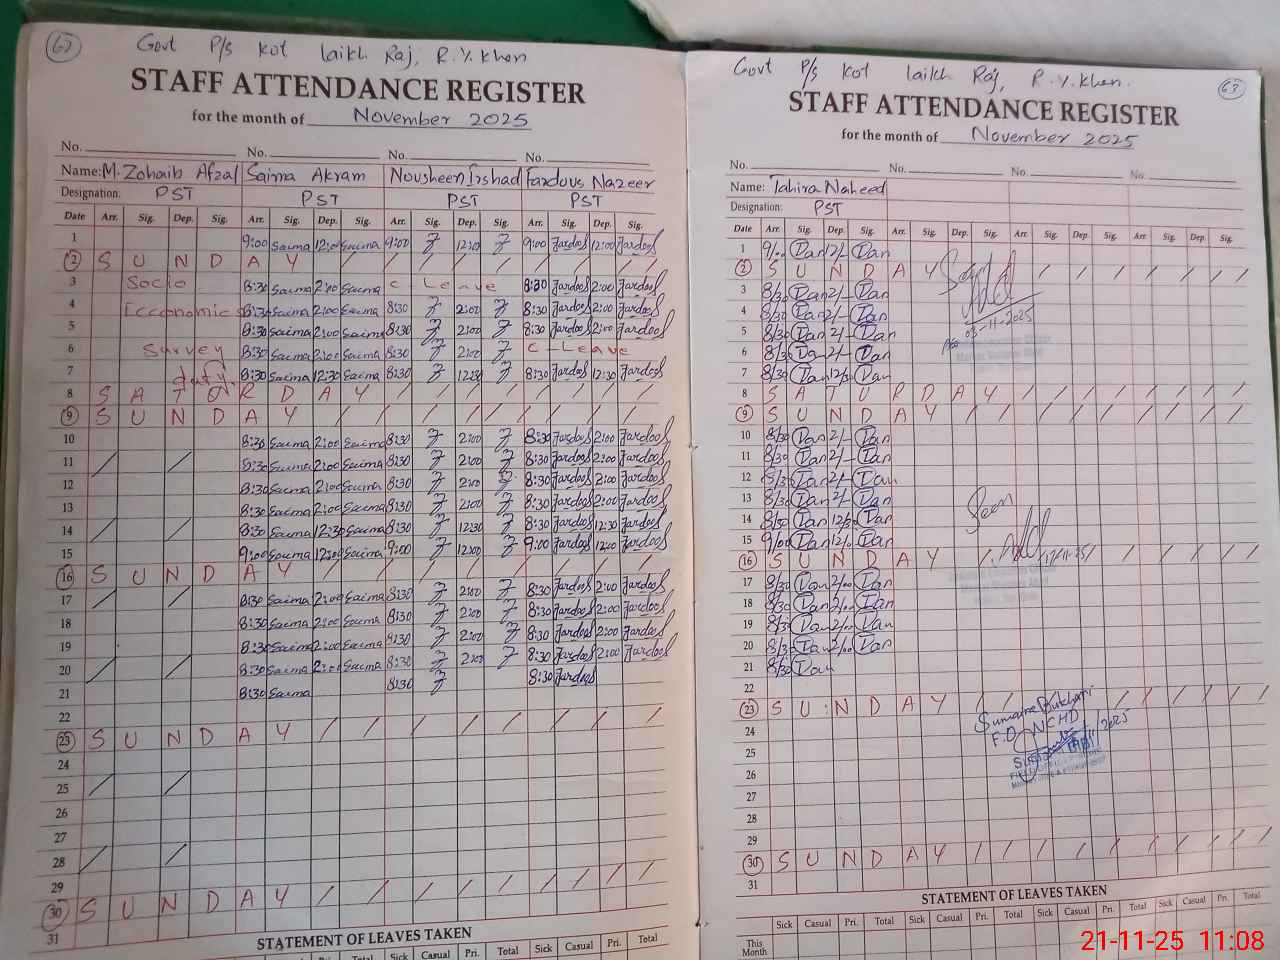 67
Govt P/s Kot laikh Raj, R.Y.Khan
STAFF ATTENDANCE REGISTER
for the month of November 2025
No. No. No. No.
Name: M. Zohaib Afzal Saima Akram Nousheen Irshad Fardous Nazeer
Designation: PST PST PST PST
Date Arr. Sig. Dep. Sig. Arr. Sig. Dep. Sig. Arr. Sig. Dep. Sig. Arr. Sig. Dep. Sig.
1 9:00 Saima 12:00 Saima 9:00 12:00 9:00 Fardool 12:00 Fardool
2 S U N D A Y
3 Socio 8:30 Saima 2:00 Saima C - Leave 8:30 Fardool 2:00 Fardool
4 Economic 8:30 Saima 2:00 Saima 8:30 2:00 8:30 Fardool 2:00 Fardool
5 8:30 Saima 2:00 Saima 8:30 2:00 8:30 Fardool 2:00 Fardool
6 Survey 8:30 Saima 2:00 Saima 8:30 2:00 C - Leave
7 duty. 8:30 Saima 12:30 Saima 8:30 12:30 8:30 Fardool 12:30 Fardool
8 S A T U R D A Y
9 S U N D A Y
10 8:30 Saima 2:00 Saima 8:30 2:00 8:30 Fardool 2:00 Fardool
11 8:30 Saima 2:00 Saima 8:30 2:00 8:30 Fardool 2:00 Fardool
12 8:30 Saima 2:00 Saima 8:30 2:00 8:30 Fardool 2:00 Fardool
13 8:30 Saima 2:00 Saima 8:30 2:00 8:30 Fardool 2:00 Fardool
14 8:30 Saima 12:30 Saima 8:30 12:30 8:30 Fardool 12:30 Fardool
15 9:00 Saima 12:00 Saima 9:00 12:00 9:00 Fardool 12:00 Fardool
16 S U N D A Y
17 8:30 Saima 2:00 Saima 8:30 2:00 8:30 Fardool 2:00 Fardool
18 8:30 Saima 2:00 Saima 8:30 2:00 8:30 Fardool 2:00 Fardool
19 8:30 Saima 2:00 Saima 8:30 2:00 8:30 Fardool 2:00 Fardool
20 8:30 Saima 2:00 Saima 8:30 2:00 8:30 Fardool 2:00 Fardool
21 8:30 Saima 8:30 8:30 Fardool
22
23 S U N D A Y
24
25
26
27
28
29
30 S U N D A Y
31
STATEMENT OF LEAVES TAKEN
Dep. Sig. Casual Pri. Total Sick Casual Pri. Total
Govt P/s Kot laikh Raj, R.Y.Khan.
63
STAFF ATTENDANCE REGISTER
for the month of November 2025
No. No. No. No.
Name: Tahira Naheed
Designation: PST
Date Arr. Sig. Dep. Sig. Arr. Sig. Dep. Sig. Arr. Sig. Dep. Sig. Arr. Sig. Dep. Sig.
1 9/00 Dan 12/- Dan
2 S U N D A Y Seen
3 8/30 Dan 2/- Dan
4 8/30 Dan 2/- Dan 03-11-2025
5 8/30 Dan 2/- Dan
6 8/30 Dan 2/- Dan
7 8/30 Dan 12/30 Dan
8 S A T U R D A Y
9 S U N D A Y
10 8/30 Dan 2/- Dan
11 8/30 Dan 2/- Dan
12 8/30 Dan 2/- Dan
13 8/30 Dan 2/- Dan Seen
14 8/30 Dan 12/30 Dan
15 9/00 Dan 12/- Dan
16 S U N D A Y 17/11-25
17 8/30 Dan 2/00 Dan
18 8/30 Dan 2/00 Dan
19 8/30 Dan 2/00 Dan
20 8/30 Dan 2/00 Dan
21 8/30 Dan
22
23 S U N D A Y
24 Sumaira Bukhari
25 F.O NCHD
26
27
28
29
30 S U N D A Y
31
STATEMENT OF LEAVES TAKEN
Sick Casual Pri. Total Sick Casual Pri. Total Sick Casual Pri. Total Sick Casual Pri. Total
This Month
21-11-25 11:08